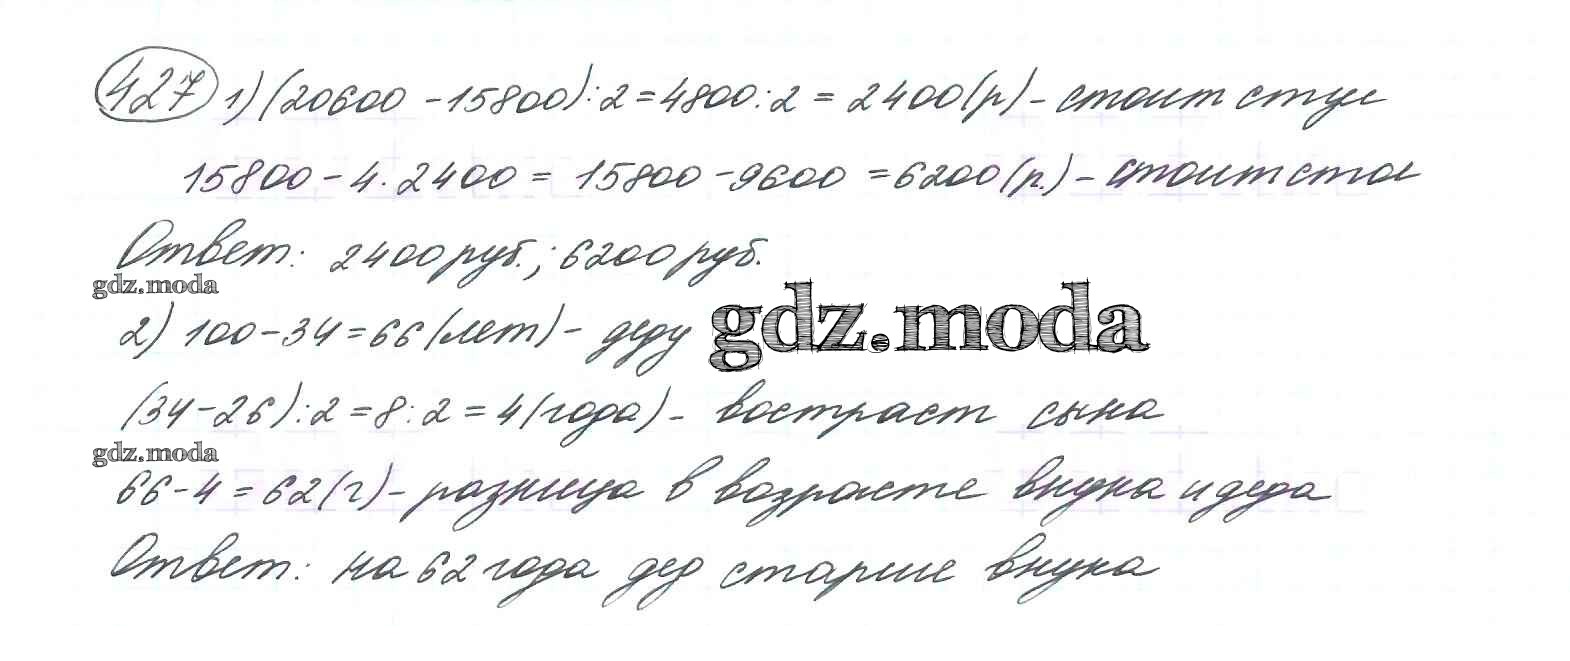 427 1) (20600 - 15800) : 2 = 4800 : 2 = 2400 (р) - стоит стул
15800 - 4 · 2400 = 15800 - 9600 = 6200 (р.) - стоит стол
Ответ: 2400 руб.; 6200 руб.
gdz.moda
2) 100 - 34 = 66 (лет) - деду
gdz.moda
(34 - 26) : 2 = 8 : 2 = 4 (года) - востраст сына
gdz.moda
66 - 4 = 62 (г) - разница в возрасте внука и деда
Ответ: на 62 года дед старше внука